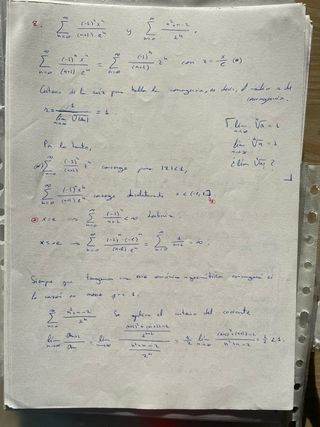 2. \sum_{n=0}^{\infty} \frac{(-1)^n x^n}{(n+1) \cdot e^n} y \sum_{n=0}^{\infty} \frac{n^2+n-2}{2^n}.
\sum_{n=0}^{\infty} \frac{(-1)^n x^n}{(n+1) e^n} = \sum_{n=0}^{\infty} \frac{(-1)^n}{(n+1)} z^n con z = \frac{x}{e} (*)
Criterio de la raíz para hallar la convergencia, es decir, el radio de
convergencia.
r = \frac{1}{\lim \sqrt[n]{|a_n|}} = 1.
\lim_{n→∞} \sqrt[n]{n} = 1
Por lo tanto,
(*) \sum_{n=0}^{\infty} \frac{(-1)^n}{(n+1)} z^n converge para |z| < 1,
\sum_{n=0}^{\infty} \frac{(-1)^n x^n}{(n+1) e^n} converge
x = e → \sum_{n=0}^{\infty} \frac{(-1)^n}{n+1} < ∞
x = -e → \sum_{n=0}^{\infty} \frac{(-1)^n \cdot (-e)^n}{(n+1) \cdot e^n} = \sum_{n=0}^{\infty} \frac{1}{n+1} = ∞.
Siempre que tengamos una serie aritmético-geométrica convergerá si
la razón es menor que 1.
\sum_{n=0}^{\infty} \frac{n^2+n-2}{2^n} Se aplica el criterio del cociente
\lim_{n→∞} \frac{a_{n+1}}{a_n} = \lim_{n→∞} \frac{\frac{(n+1)^2+(n+1)-2}{2^{n+1}}}{\frac{n^2+n-2}{2^n}} = \frac{1}{2} \lim_{n→∞} \frac{(n+1)^2+(n+1)-2}{n^2+n-2} = \frac{1}{2} < 1.